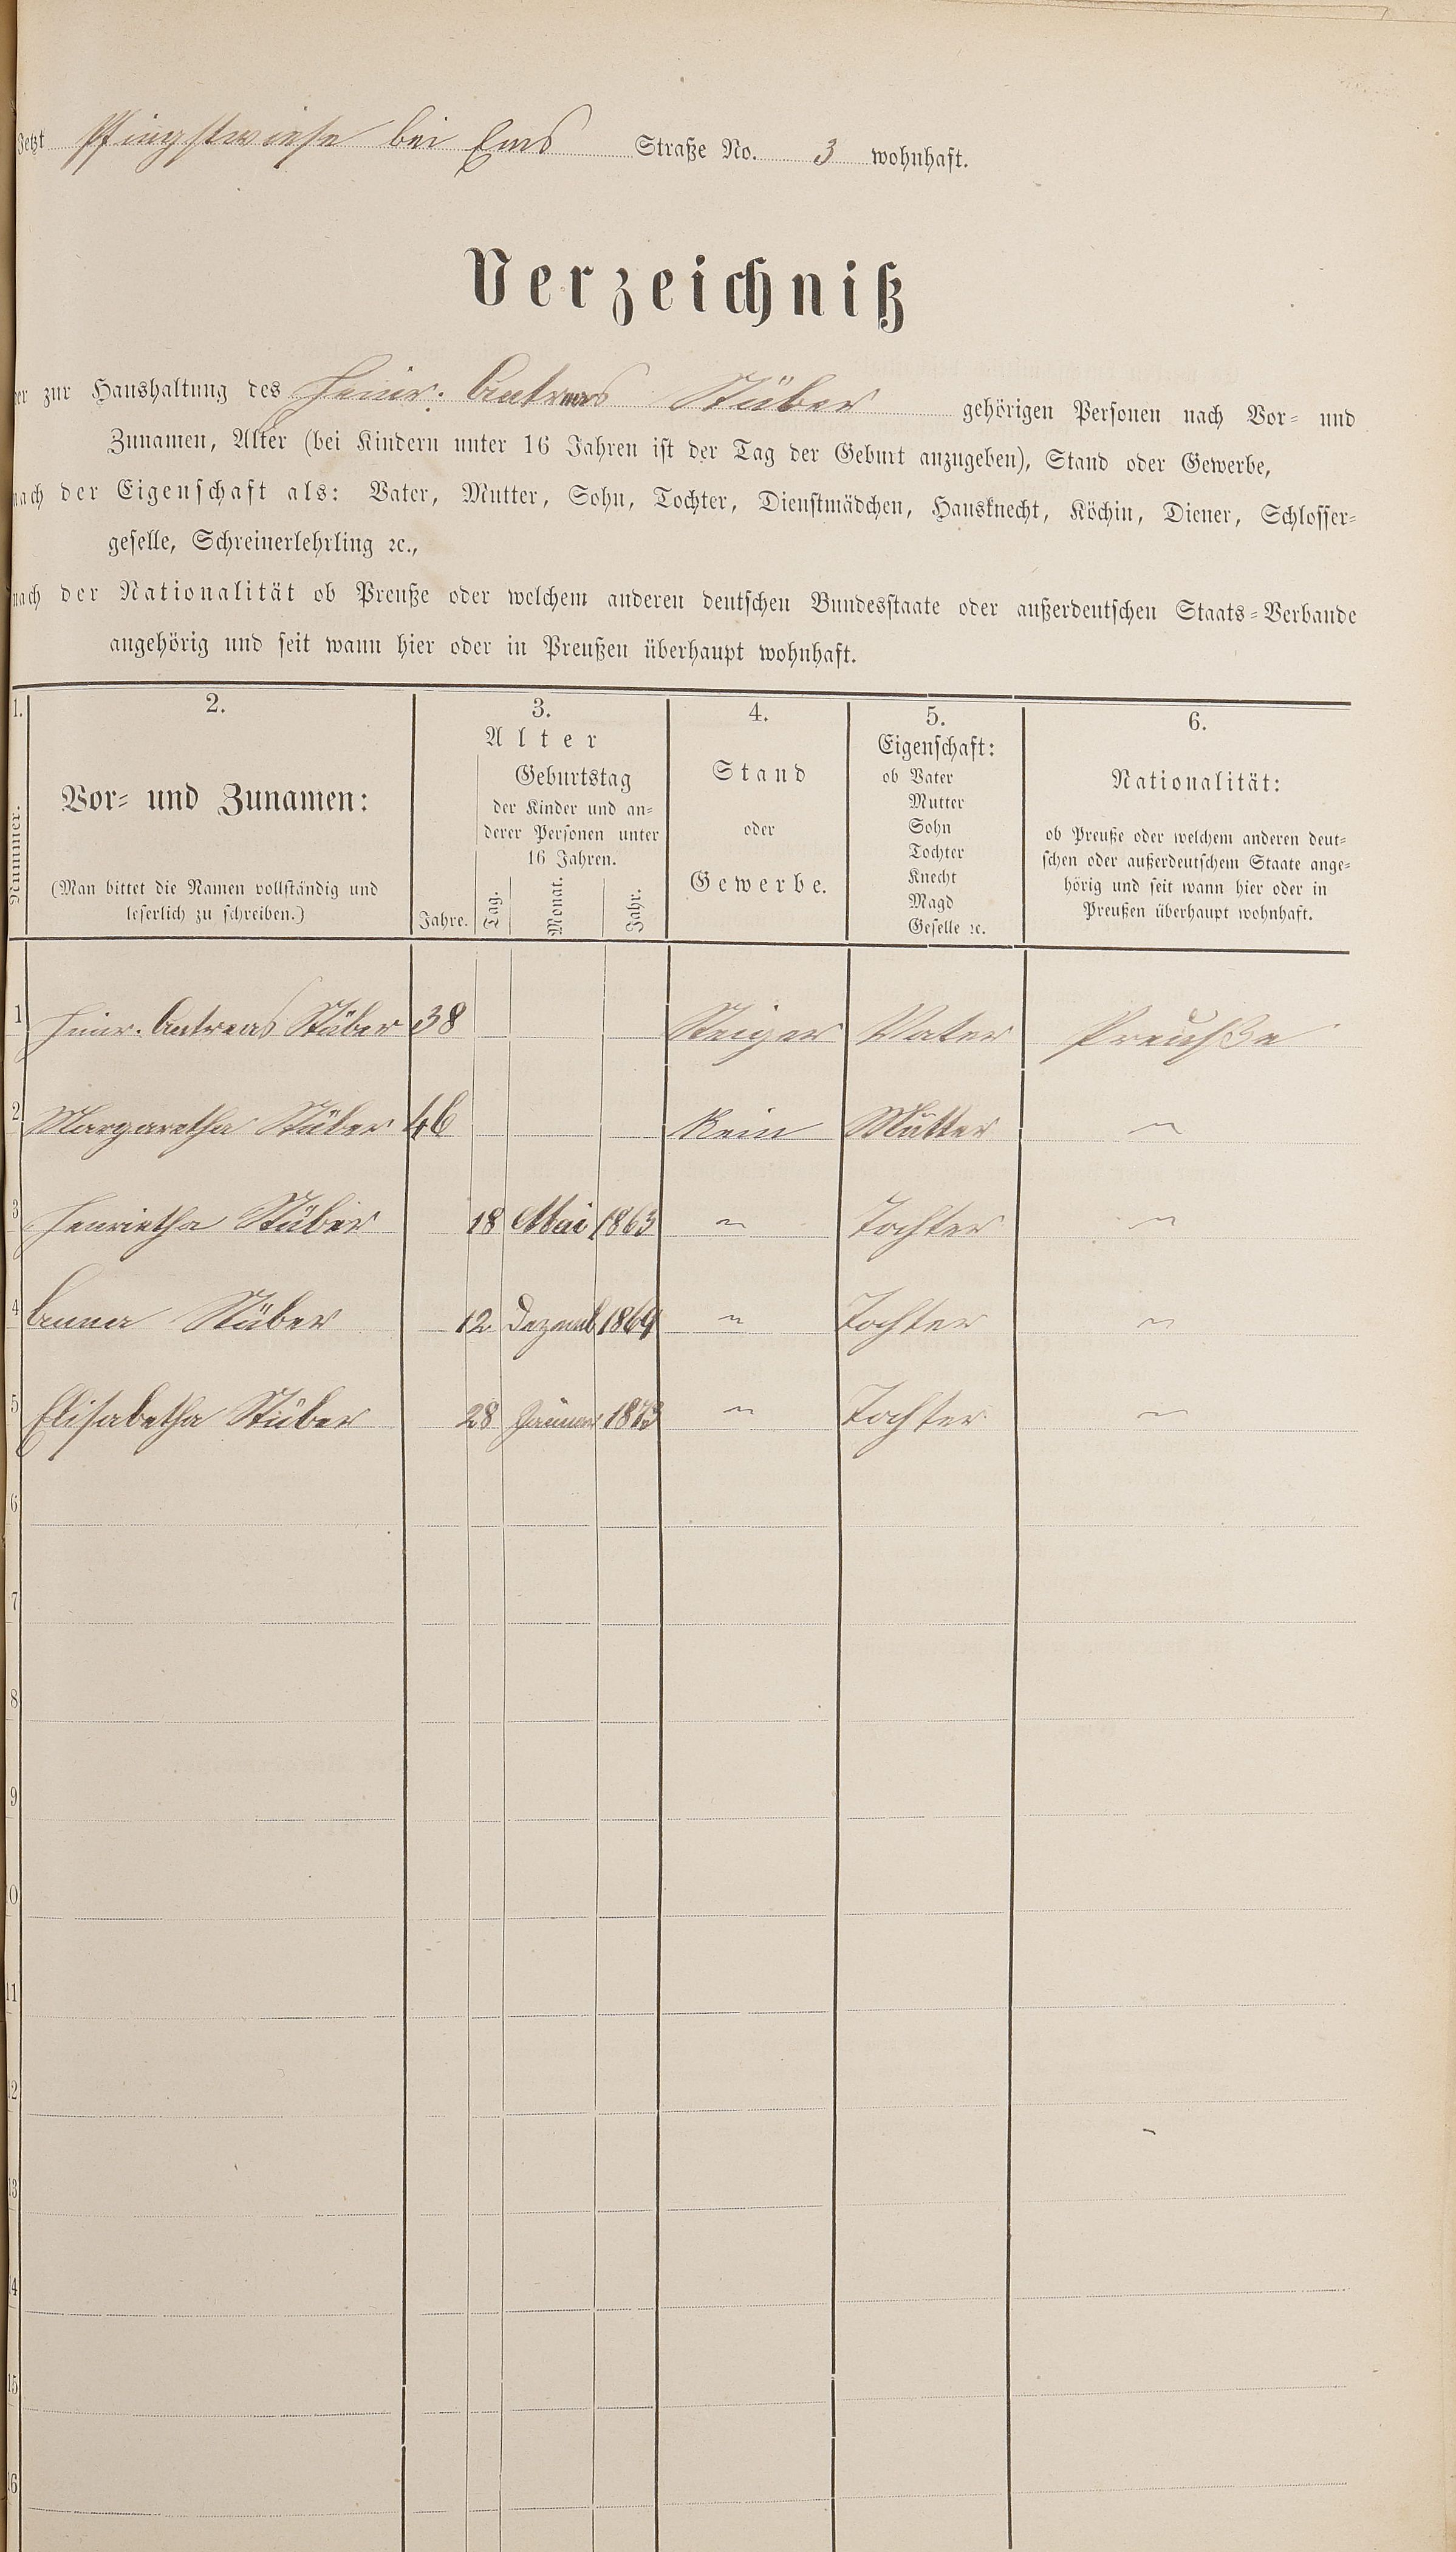 Jetzt Pfingstwiese bei Ems Straße No. 3 wohnhaft.
Verzeichniß
der zur Haushaltung des Heinr. Andreas Stüber gehörigen Personen nach Vor- und
Zunamen, Alter (bei Kindern unter 16 Jahren ist der Tag der Geburt anzugeben), Stand oder Gewerbe,
nach der Eigenschaft als: Vater, Mutter, Sohn, Tochter, Dienstmädchen, Hausknecht, Köchin, Diener, Schlosser-
geselle, Schreinerlehrling ꝛc.,
nach der Nationalität ob Preuße oder welchem anderen deutschen Bundesstaate oder außerdeutschen Staats-Verbande
angehörig und seit wann hier oder in Preußen überhaupt wohnhaft.
1. 2. 3. 4. 5. 6.
Nummer.
Vor- und Zunamen:
(Man bittet die Namen vollständig und
leserlich zu schreiben.)
Alter
Jahre.
Geburtstag
der Kinder und an-
derer Personen unter
16 Jahren.
Tag. Monat. Jahr.
Stand
oder
Gewerbe.
Eigenschaft:
ob Vater
Mutter
Sohn
Tochter
Knecht
Magd
Geselle ꝛc.
Nationalität:
ob Preuße oder welchem anderen deut-
schen oder außerdeutschem Staate ange-
hörig und seit wann hier oder in
Preußen überhaupt wohnhaft.
1 Heinr. Andreas Stüber 38 Steiger Vater Preuße
2 Margaretha Stüber 46 Kein Mutter "
3 Henrietha Stüber 18 Mai 1863 " Tochter "
4 Anna Stüber 12 Dezemb 1869 " Tochter "
5 Elisabetha Stüber 28 Januar 1873 " Tochter "
6
7
8
9
10
11
12
13
14
15
16